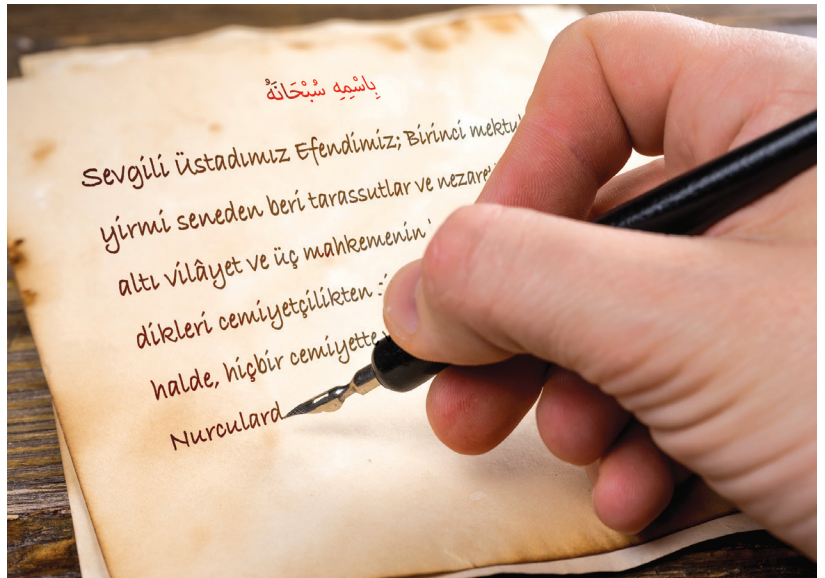 بِاسْمِهِ سُبْحَانَهُ
Sevgili Üstadımız Efendimiz; Birinci
yirmi seneden beri tarassutlar ve
altı vilâyet ve üç mahkemenin
dikleri cemiyetçilikten
halde, hiçbir cemiyette
Nurculard